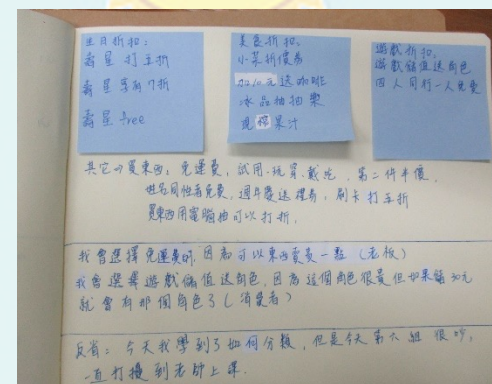 生日折扣:
壽星打五折
壽星享有7折
壽星 free
美食折扣:
小菜折價券
加10元送咖啡
冰品抽抽樂
現榨果汁
遊戲折扣:
遊戲儲值送角色
四人同行一人免費
其它⇒買東西:免運費,試用、玩、穿、戴、吃,第二件半價,
姓名同性者免費,週年慶送禮券,刷卡打五折
買東西用電腦抽可以打折,
我會選擇免運費的,因為可以東西賣貴一點(老板)
我會選擇遊戲儲值送角色,因為這個角色很貴但如果儲30元
就會有那個角色了(消費者)
反省:今天我學到了如何分類,但是今天第六組很吵,
一直打擾到老師上課.